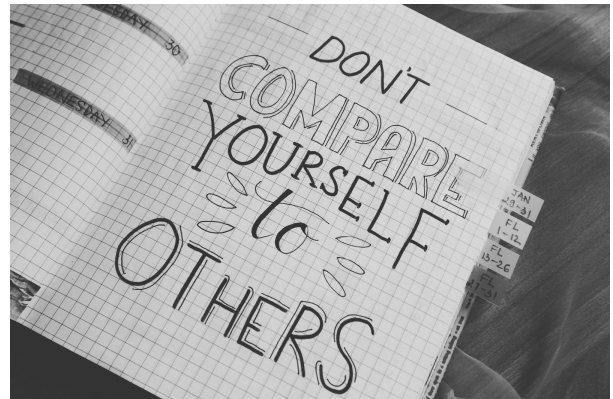 TUESDAY 30
WEDNESDAY 31
DON'T
COMPARE
YOURSELF
to
OTHERS
JAN
29-31
FL
1-12
FL
13-26
FL
27-31